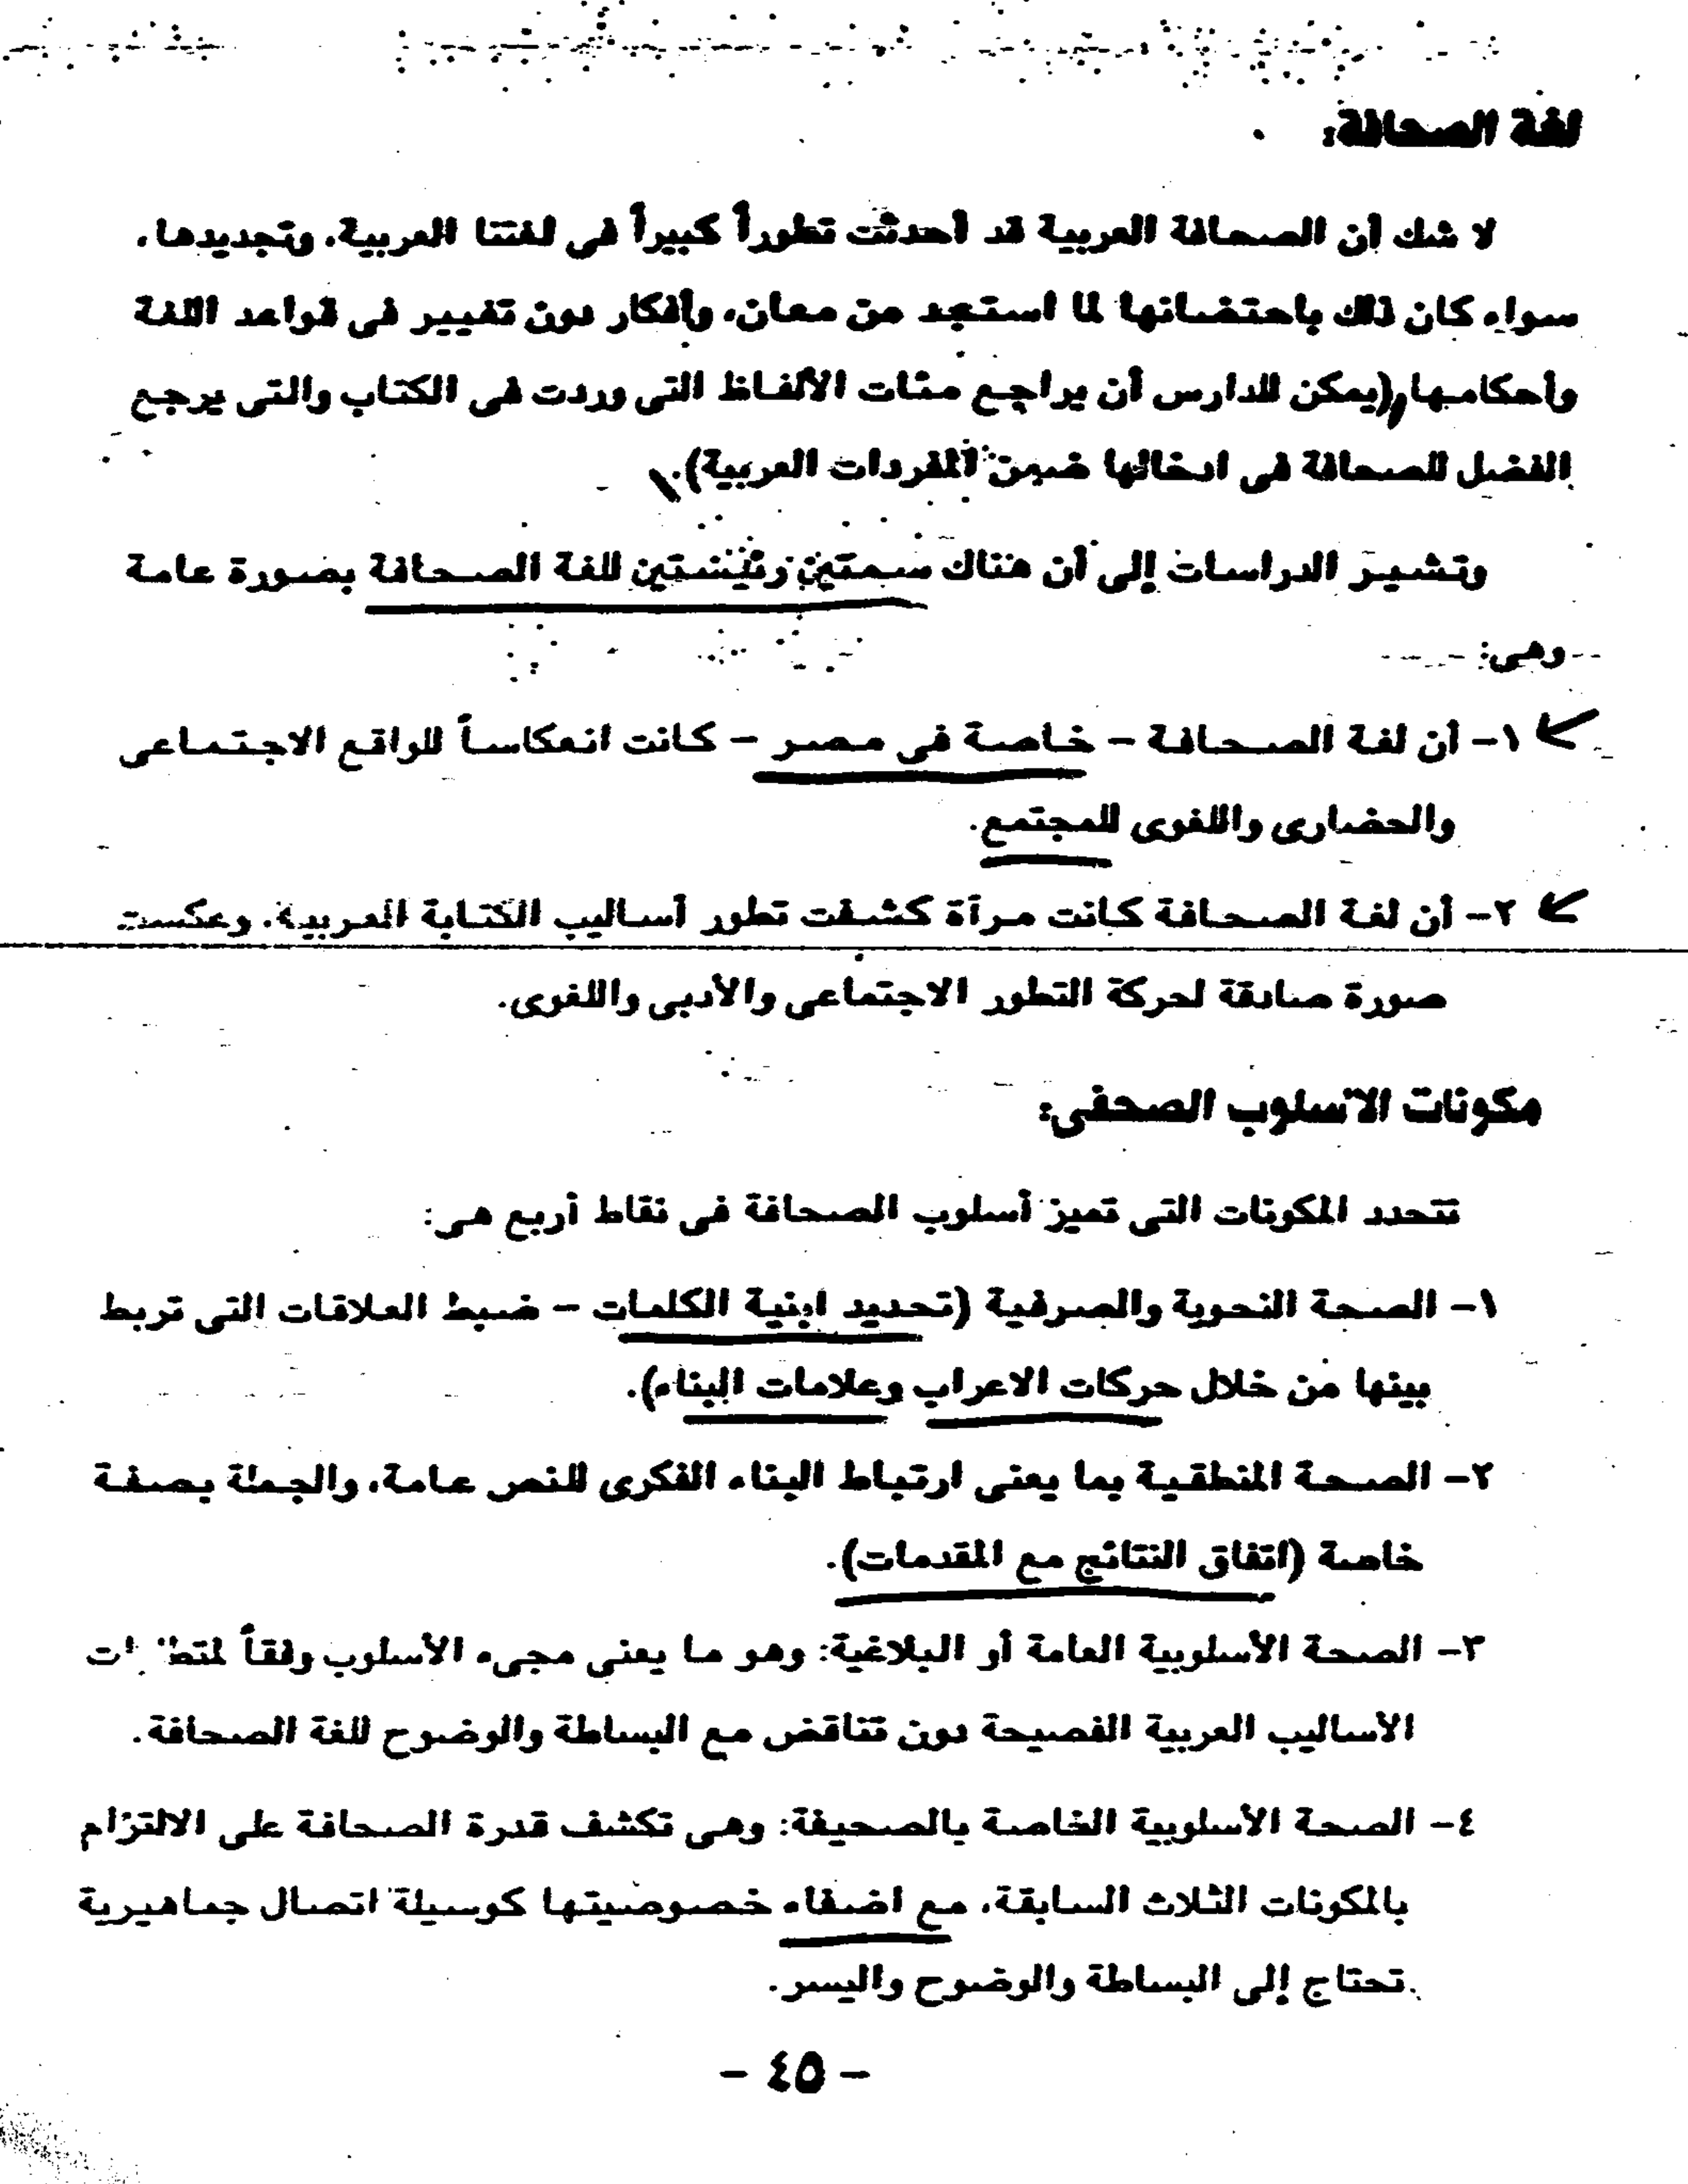 لغة الصحافة:
لا شك أن الصحافة العربية قد أحدثت تطوراً كبيراً فى لغتنا العربية، وتجديدها،
سواء كان ذلك باحتضانها لما استجد من معان، وأفكار دون تغيير فى قواعد اللغة
وأحكامها، (يمكن للدارس أن يراجع مئات الألفاظ التى وردت فى الكتاب والتى يرجع
الفضل للصحافة فى ادخالها ضمن المفردات العربية).
وتشير الدراسات إلى أن هناك سمتين رئيستين للغة الصحافة بصورة عامة
وهى:
١- أن لغة الصحافة - خاصة فى مصر - كانت انعكاساً للواقع الاجتماعى
والحضارى واللغوى للمجتمع.
٢- أن لغة الصحافة كانت مرآة كشفت تطور أساليب الكتابة العربية، وعكست
صورة صادقة لحركة التطور الاجتماعى والأدبى واللغوى.
مكونات الأسلوب الصحفى:
تتحدد المكونات التى تميز أسلوب الصحافة فى نقاط أربع هى:
١- الصحة النحوية والصرفية (تحديد ابنية الكلمات - ضبط العلاقات التى تربط
بينها من خلال حركات الاعراب وعلامات البناء).
٢- الصحة المنطقية بما يعنى ارتباط البناء الفكرى للنص عامة، والجملة بصفة
خاصة (اتفاق النتائج مع المقدمات).
٣- الصحة الأسلوبية العامة أو البلاغية: وهو ما يعنى مجىء الأسلوب وفقاً
الأساليب العربية الفصيحة دون تناقض مع البساطة والوضوح للغة الصحافة.
٤- الصحة الأسلوبية الخاصة بالصحيفة: وهى تكشف قدرة الصحافة على الالتزام
بالمكونات الثلاث السابقة، مع اضفاء خصوصيتها كوسيلة اتصال جماهيرية
تحتاج إلى البساطة والوضوح واليسر.
- ٤٥ -